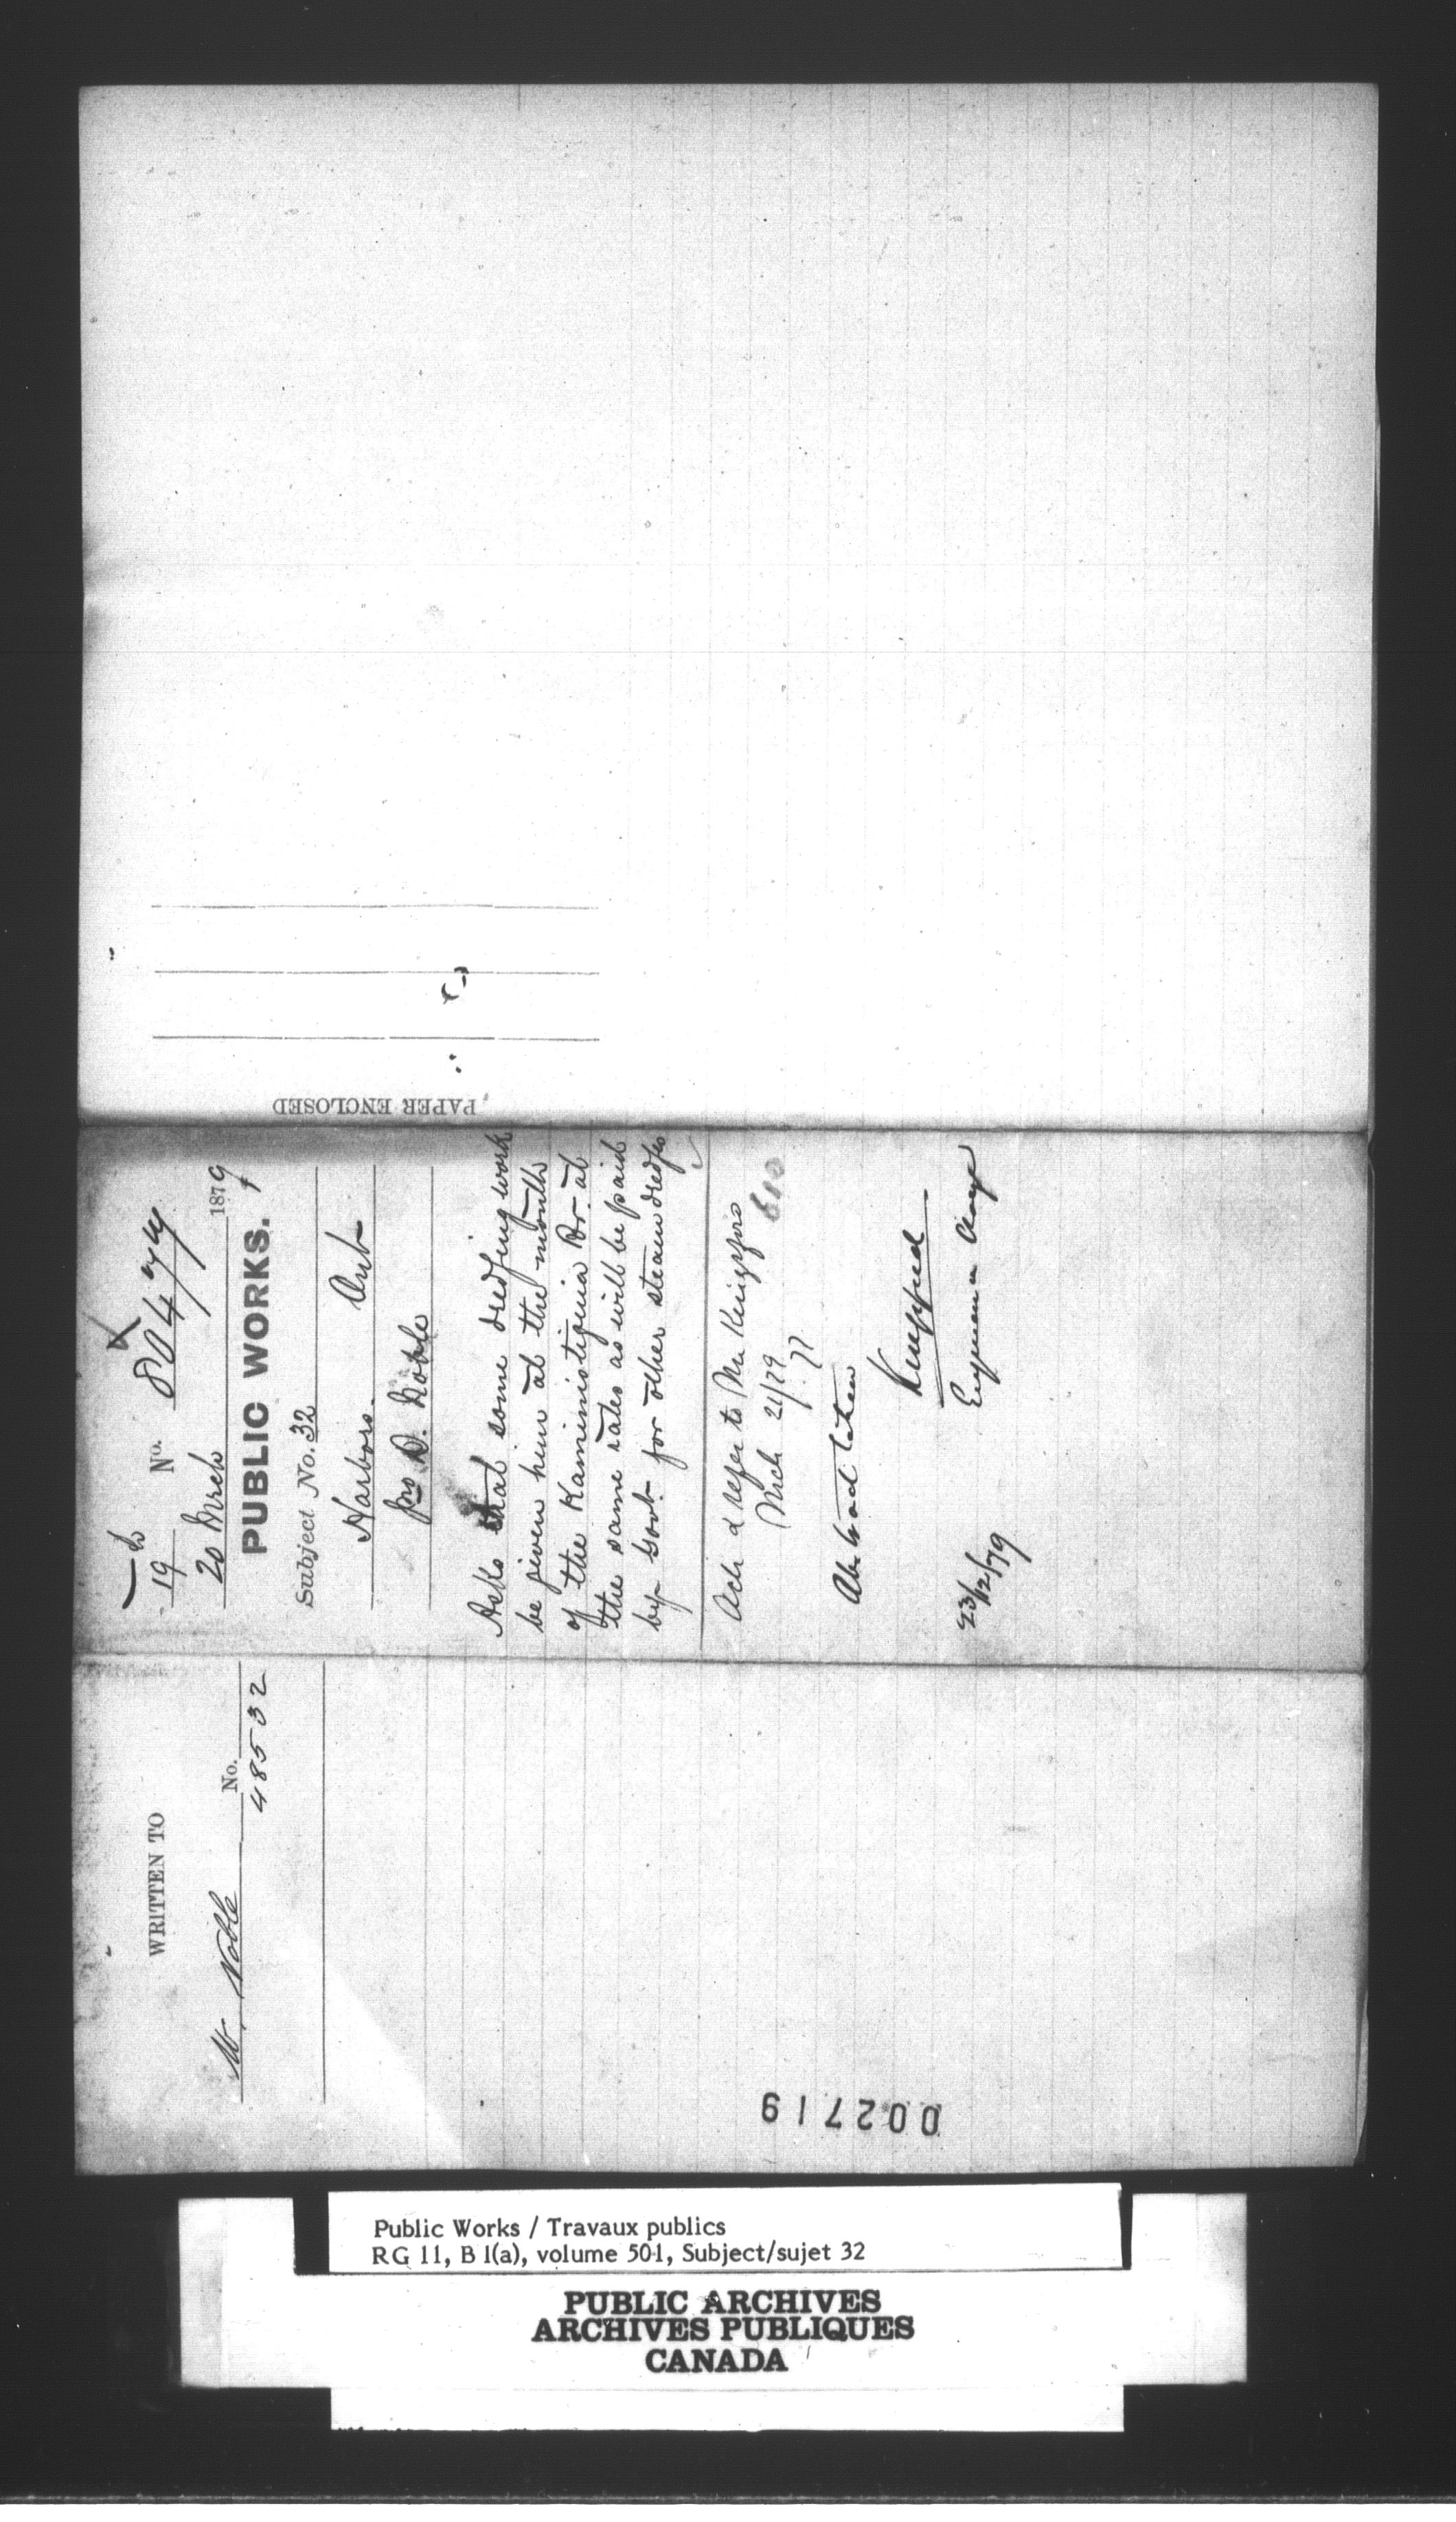 PAPER ENCLOSED
19 No. 80474
20 Mrch 1879
PUBLIC WORKS.
Subject No. 32
Harbors. Ont
Jno D. Noble
Asks that some dredging work
be given him at the mouth
of the Kaministiquia Rr. at
the same rates as will be paid
by Govt. for other steam dredges
Ack & refer to Mr Kingsford
Mch 21/79
Abstract taken
Kingsford
Engineer in Charge
23/12/79
WRITTEN TO
M. Noble No. 48532
002719
Public Works / Travaux publics
RG 11, B 1(a), volume 501, Subject/sujet 32
PUBLIC ARCHIVES
ARCHIVES PUBLIQUES
CANADA